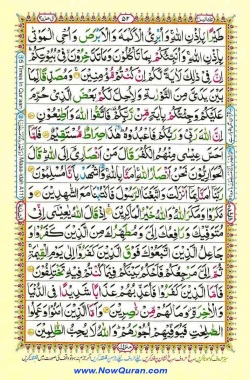 ٥٢
طَيْرًۢا بِاِذْنِ اللّٰهِ وَاُبْرِئُ الْاَكْمَهَ وَالْاَبْرَصَ وَاُحْيِ الْمَوْتٰى
بِاِذْنِ اللّٰهِ وَاُنَبِّئُكُمْ بِمَا تَاْكُلُوْنَ وَمَا تَدَّخِرُوْنَ فِيْ بُيُوْتِكُمْ
اِنَّ فِيْ ذٰلِكَ لَاٰيَةً لَّكُمْ اِنْ كُنْتُمْ مُّؤْمِنِيْنَ وَمُصَدِّقًا لِّمَا
بَيْنَ يَدَيَّ مِنَ التَّوْرٰىةِ وَلِاُحِلَّ لَكُمْ بَعْضَ الَّذِيْ حُرِّمَ
عَلَيْكُمْ وَجِئْتُكُمْ بِاٰيَةٍ مِّنْ رَّبِّكُمْ فَاتَّقُوا اللّٰهَ وَاَطِيْعُوْنِ
اِنَّ اللّٰهَ رَبِّيْ وَرَبُّكُمْ فَاعْبُدُوْهُ هٰذَا صِرَاطٌ مُّسْتَقِيْمٌ فَلَمَّآ
اَحَسَّ عِيْسٰى مِنْهُمُ الْكُفْرَ قَالَ مَنْ اَنْصَارِيْٓ اِلَى اللّٰهِ قَالَ
الْحَوَارِيُّوْنَ نَحْنُ اَنْصَارُ اللّٰهِ اٰمَنَّا بِاللّٰهِ وَاشْهَدْ بِاَنَّا مُسْلِمُوْنَ
رَبَّنَآ اٰمَنَّا بِمَآ اَنْزَلْتَ وَاتَّبَعْنَا الرَّسُوْلَ فَاكْتُبْنَا مَعَ الشّٰهِدِيْنَ وَ
مَكَرُوْا وَمَكَرَ اللّٰهُ وَاللّٰهُ خَيْرُ الْمٰكِرِيْنَ اِذْ قَالَ اللّٰهُ يٰعِيْسٰٓى اِنِّيْ
مُتَوَفِّيْكَ وَرَافِعُكَ اِلَيَّ وَمُطَهِّرُكَ مِنَ الَّذِيْنَ كَفَرُوْا وَ
جَاعِلُ الَّذِيْنَ اتَّبَعُوْكَ فَوْقَ الَّذِيْنَ كَفَرُوْٓا اِلٰى يَوْمِ الْقِيٰمَةِ
ثُمَّ اِلَيَّ مَرْجِعُكُمْ فَاَحْكُمُ بَيْنَكُمْ فِيْمَا كُنْتُمْ فِيْهِ تَخْتَلِفُوْنَ
فَاَمَّا الَّذِيْنَ كَفَرُوْا فَاُعَذِّبُهُمْ عَذَابًا شَدِيْدًا فِي الدُّنْيَا
وَالْاٰخِرَةِ وَمَا لَهُمْ مِّنْ نّٰصِرِيْنَ وَاَمَّا الَّذِيْنَ اٰمَنُوْا وَعَمِلُوا
الصّٰلِحٰتِ فَيُوَفِّيْهِمْ اُجُوْرَهُمْ وَاللّٰهُ لَا يُحِبُّ الظّٰلِمِيْنَ
www.NowQuran.com